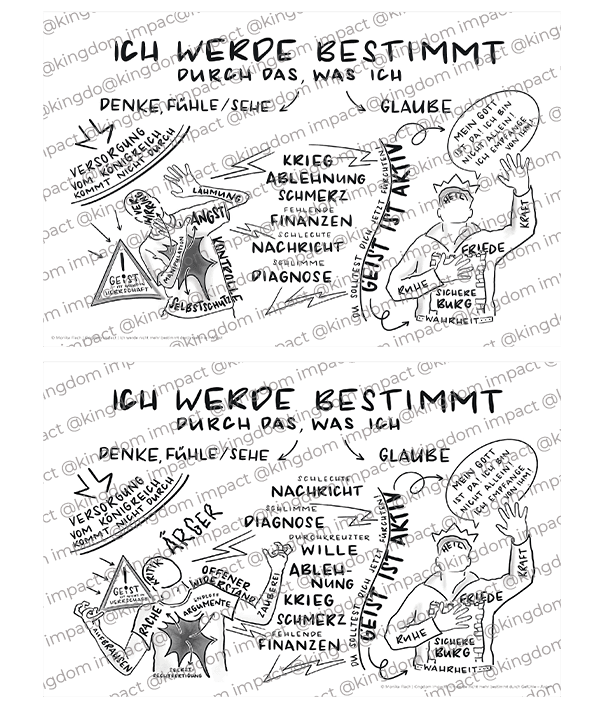 ICH WERDE BESTIMMT
DURCH DAS, WAS ICH
DENKE, FÜHLE/SEHE
GLAUBE
VERSORGUNG
VOM KÖNIGREICH
KOMMT NICHT DURCH
LÄHMUNG
ANGST
KONTROLLE
SELBSTSCHUTZ
GEIST
IST
HERRSCHAFT
KRIEG
ABLEHNUNG
SCHMERZ
FEHLENDE
FINANZEN
SCHLECHTE
NACHRICHT
SCHLIMME
DIAGNOSE
DU SOLLTEST DICH JETZT FÜRCHTEN!
GEIST IST AKTIV
MEIN GOTT
IST DA! ICH BIN
NICHT ALLEIN!
ICH EMPFANGE
VON IHM!
HEIL
KRAFT
FRIEDE
RUHE
SICHERE
BURG
WAHRHEIT
ICH WERDE BESTIMMT
DURCH DAS, WAS ICH
DENKE, FÜHLE/SEHE
GLAUBE
VERSORGUNG
VOM KÖNIGREICH
KOMMT NICHT DURCH
ÄRGER
KRITIK
GEIST
HERRSCHAFT
RACHE
AUFBRAUSEN
OFFENER
WIDERSTAND
ENDLOSE
ARGUMENTE
ZAUBEREI
SELBST-
RECHTFERTIGUNG
SCHLECHTE
NACHRICHT
SCHLIMME
DIAGNOSE
DURCHKREUZTER
WILLE
ABLEH-
NUNG
KRIEG
SCHMERZ
FEHLENDE
FINANZEN
DU SOLLTEST DICH JETZT FÜRCHTEN!
GEIST IST AKTIV
MEIN GOTT
IST DA! ICH BIN
NICHT ALLEIN!
ICH EMPFANGE
VON IHM!
HEIL
KRAFT
FRIEDE
RUHE
SICHERE
BURG
WAHRHEIT
@kingdom impact